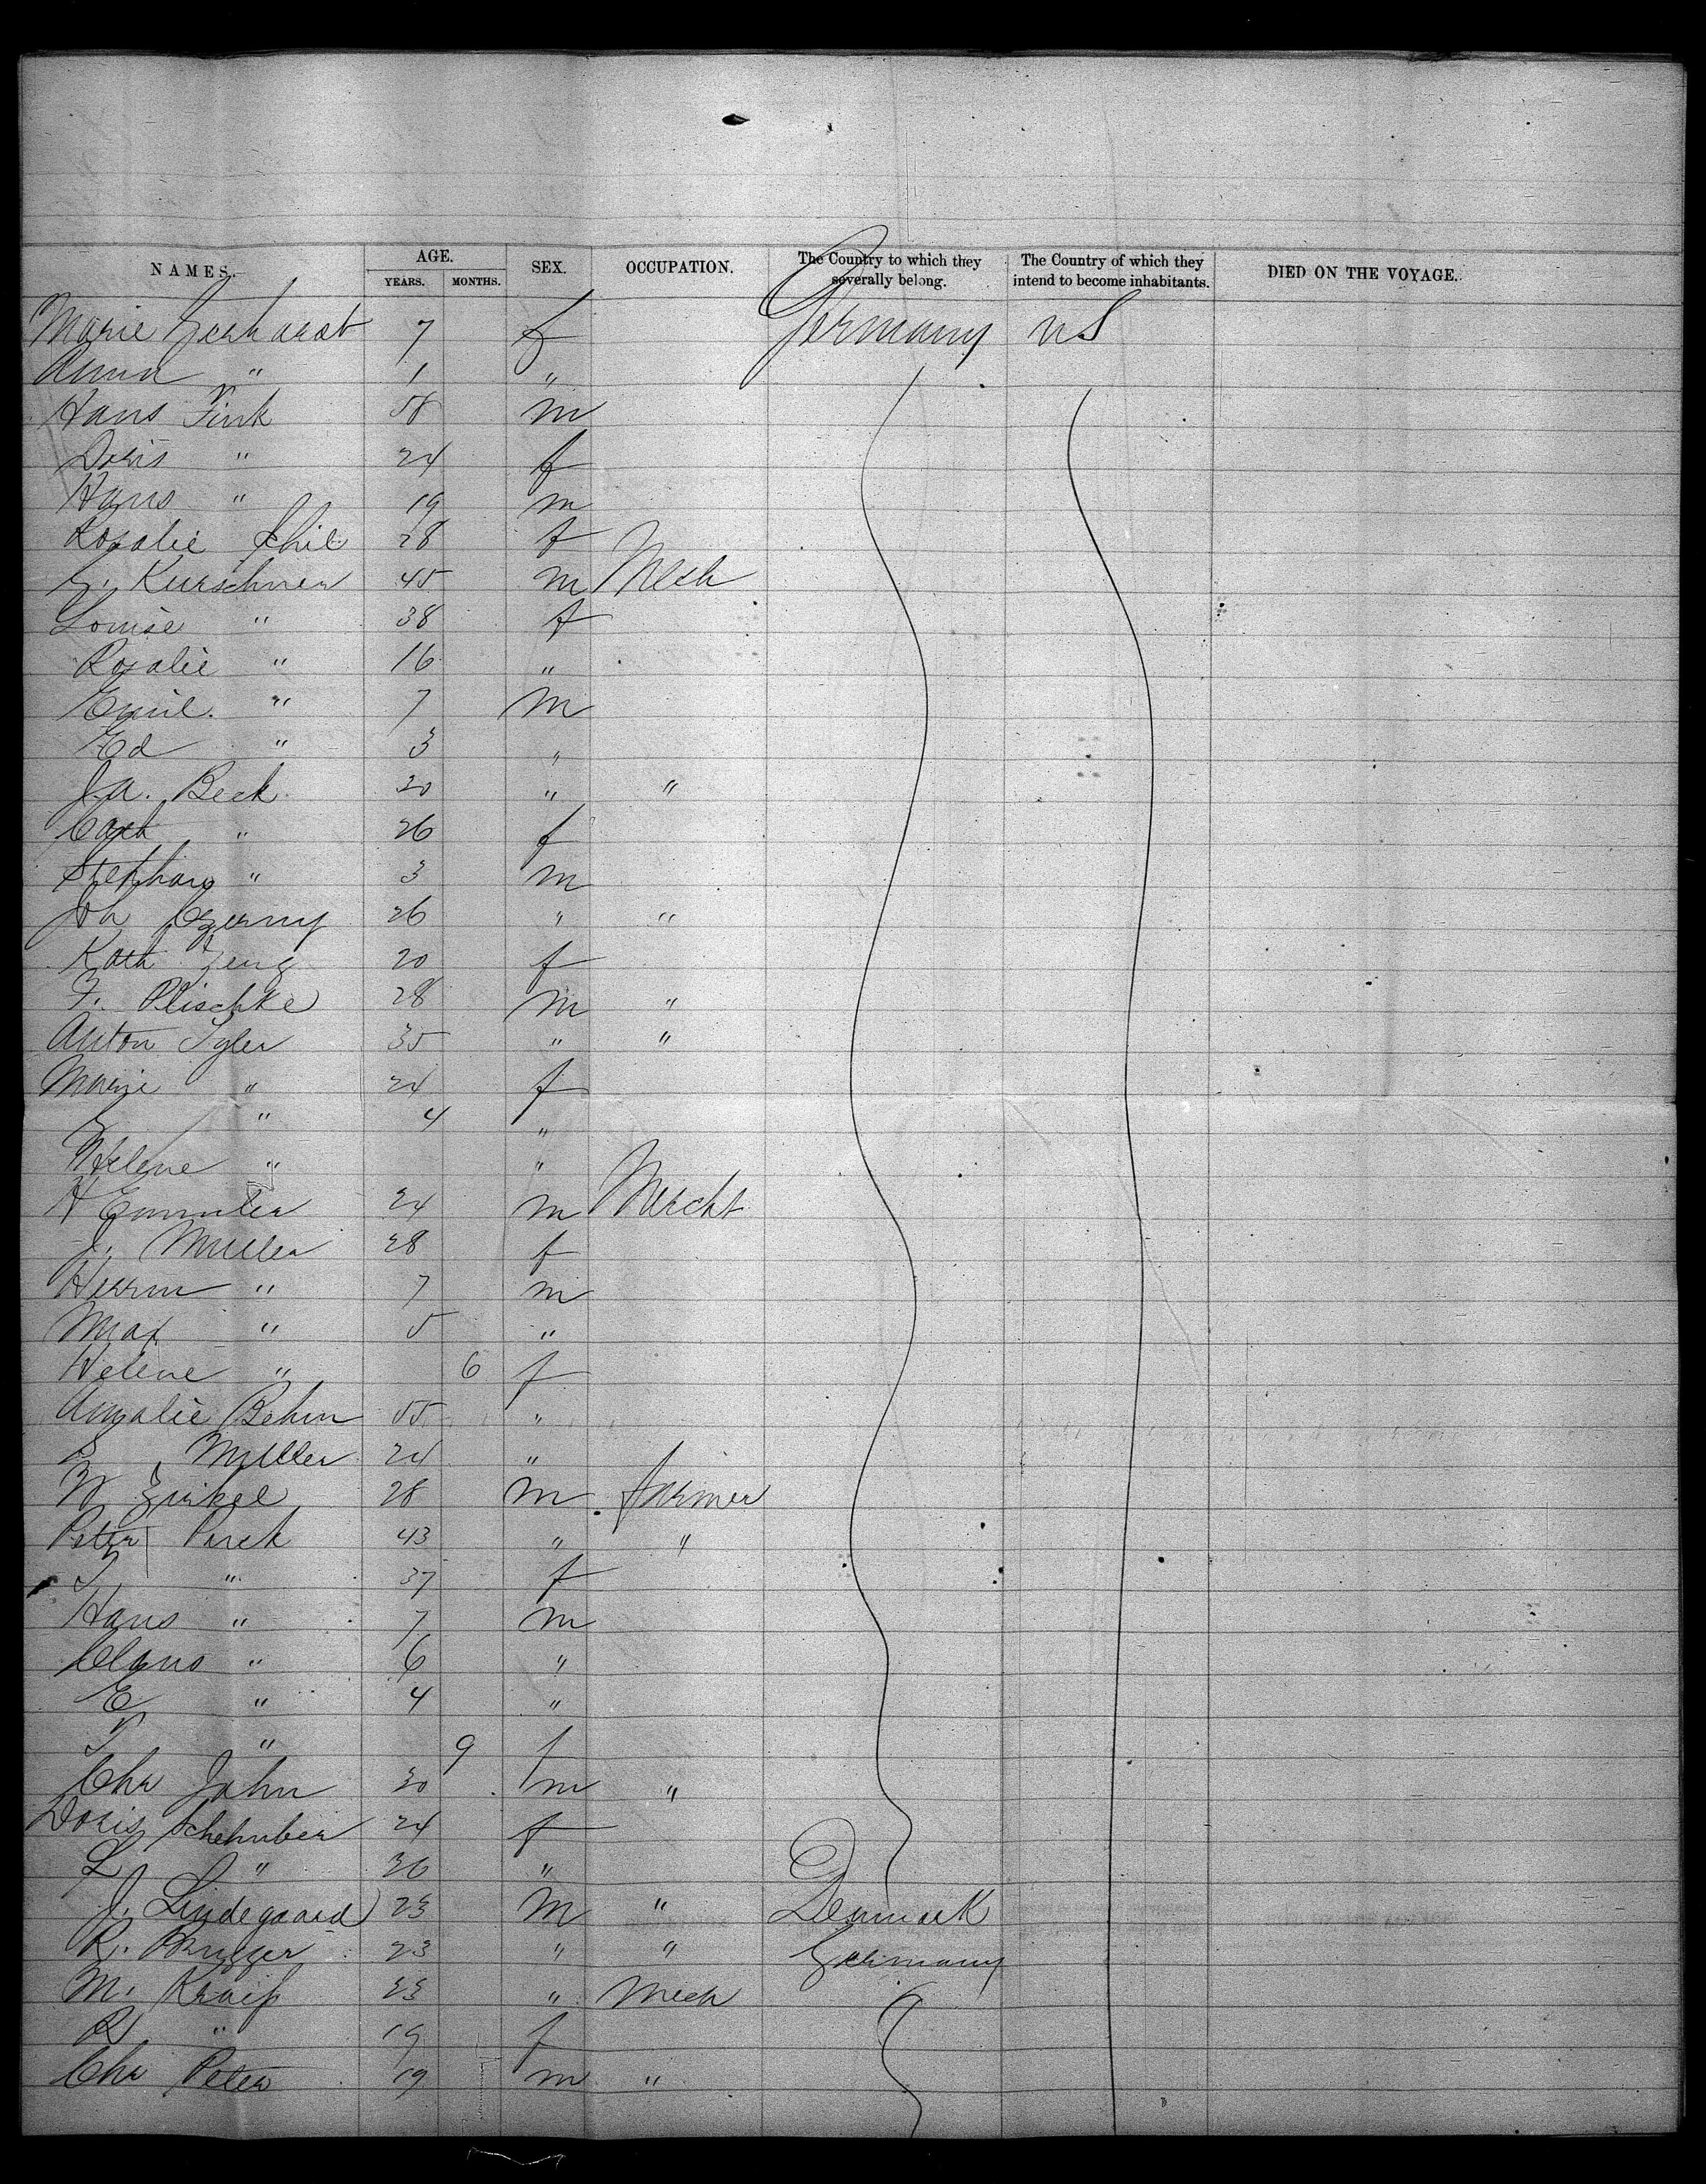 NAMES. AGE. SEX. OCCUPATION. The Country to which they severally belong. The Country of which they intend to become inhabitants. DIED ON THE VOYAGE.
YEARS. MONTHS.
Marie Gerhardt 7 f Germany US
Anna " 1 "
Hans Fink 58 m
Doris " 24 f
Hans " 19 m
Rosalie 28 f
Kurschner 45 m Mech
Louise " 38 f
Rosalie " 16 "
Emil " 7 m
Ed " 3 "
J.A. Beck 30 " "
Cath " 26 f
Stephan " 3 m
Joh Czerny 26 " "
Kath 20 f
F. Plischke 28 m "
Anton Tyler 35 " "
Marie " 24 f
" 4 "
Helene " "
H 24 m Mercht
J. Muller 28 f
Herrm " 7 m
Max " 5 "
Helene " 6 f
Amalie Behm 55 "
Muller 24 "
W Zirkel 28 m farmer
Peter Parck 43 " "
" 37 f
Hans " 7 m
Claus " 6 "
E " 4 "
" 9 f
Chr Jahn 30 m "
Doris 24 f
L " 36 "
J. Lindegaard 23 m " Denmark
R. Brugger 23 " " Germany
M. Kraiß 23 " Mech
R " 19 f
Chr Peter 19 m "